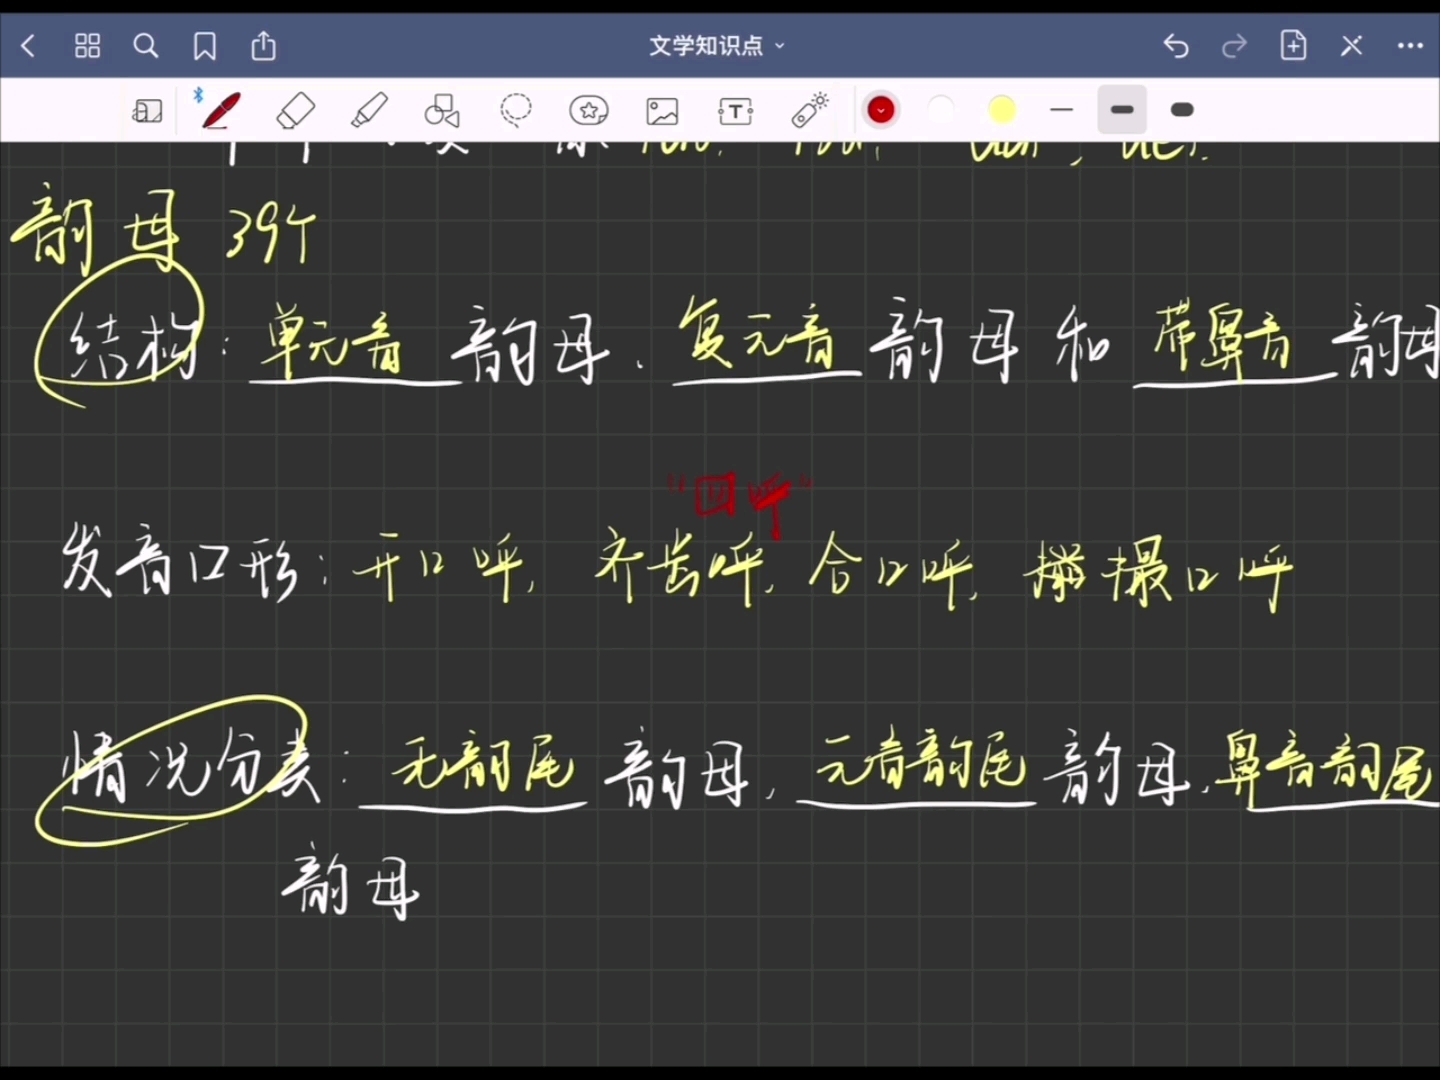 文学知识点
韵母 39个
结构：单元音韵母、复元音韵母和带鼻音韵母
"四呼"
发音口形：开口呼，齐齿呼，合口呼，撮口呼
情况分类：无韵尾韵母，元音韵尾韵母，鼻音韵尾
韵母